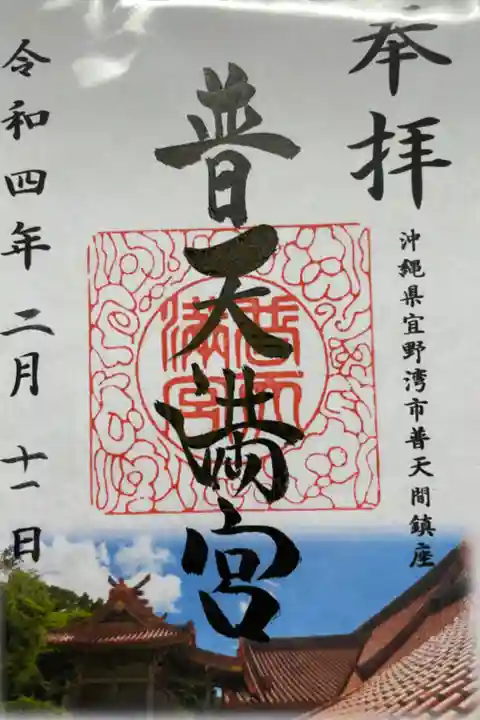 奉拝
沖縄県宜野湾市普天間鎮座
普天満宮
令和四年二月十一日